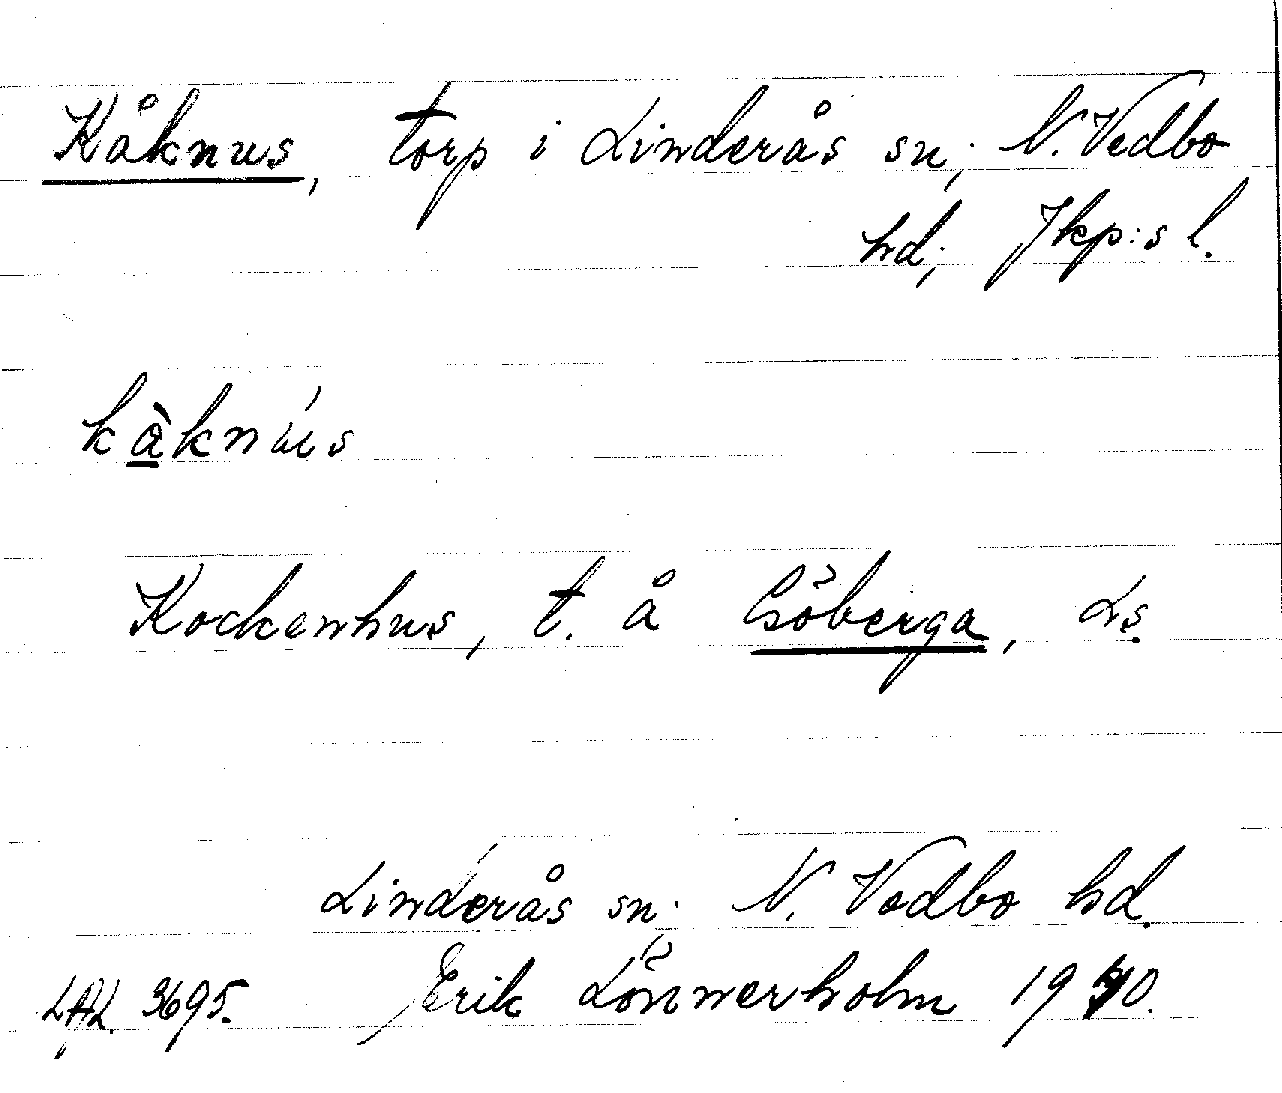 Kåknus, torp i Linderås sn; N. Vedbo
hd; Jkp:s l.
kàknús
Kockenhus, t. å Göberga, Ls.
Linderås sn; N. Vedbo hd.
LAL 3695. Erik Lönnerholm 1940.